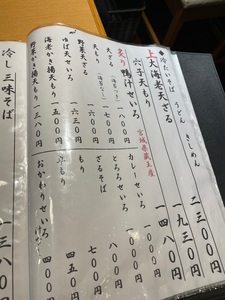 ◆冷たいそば うどん きしめん
上大海老天ざる 二三〇〇円
穴子天もり 一九三〇円
炙り鴨汁せいろ 一四八〇円
宮城県蔵王産
天ざる 一八〇〇円
カレーせいろ 一〇〇〇円
天もり 一七〇〇円
とろろせいろ 八〇〇円
野菜天ざる 一六三〇円
ざるそば 七〇〇円
ゆば天せいろ
もり
海老かき揚天もり 一五〇〇円
四五〇円
野菜かき揚天もり 一三〇〇円
おかわりせいろ 四〇〇円
冷し三味そば 一三八〇円